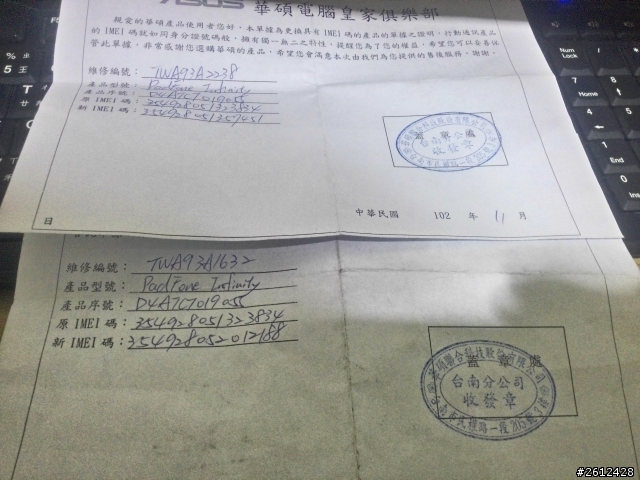 ASUS 華碩電腦皇家俱樂部
親愛的華碩產品使用者您好，本單據為更換具有 IMEI 碼的產品的單據之證明，行動通訊產品
的 IMEI 碼就如同身分證號碼般，擁有獨一無二之特性，提醒您為了您的權益，希望您可以妥善保
管此單據，非常感謝您選購華碩的產品，希望您會滿意本次由我們為您提供的售後服務，謝謝。
維修編號： TWA93A2238
產品型號： PadFone Infinity
產品序號： D4A7CT019055
原 IMEI 碼： 354928051323834
新 IMEI 碼： 354928051357451
台南分公司
收發章
中華民國 102 年 11 月
日
維修編號： TWA93A1632
產品型號： PadFone Infinity
產品序號： D4A7CT019055
原 IMEI 碼： 354928051323834
新 IMEI 碼： 354928052012188
蓋章處
台南分公司
收發章
#2612428